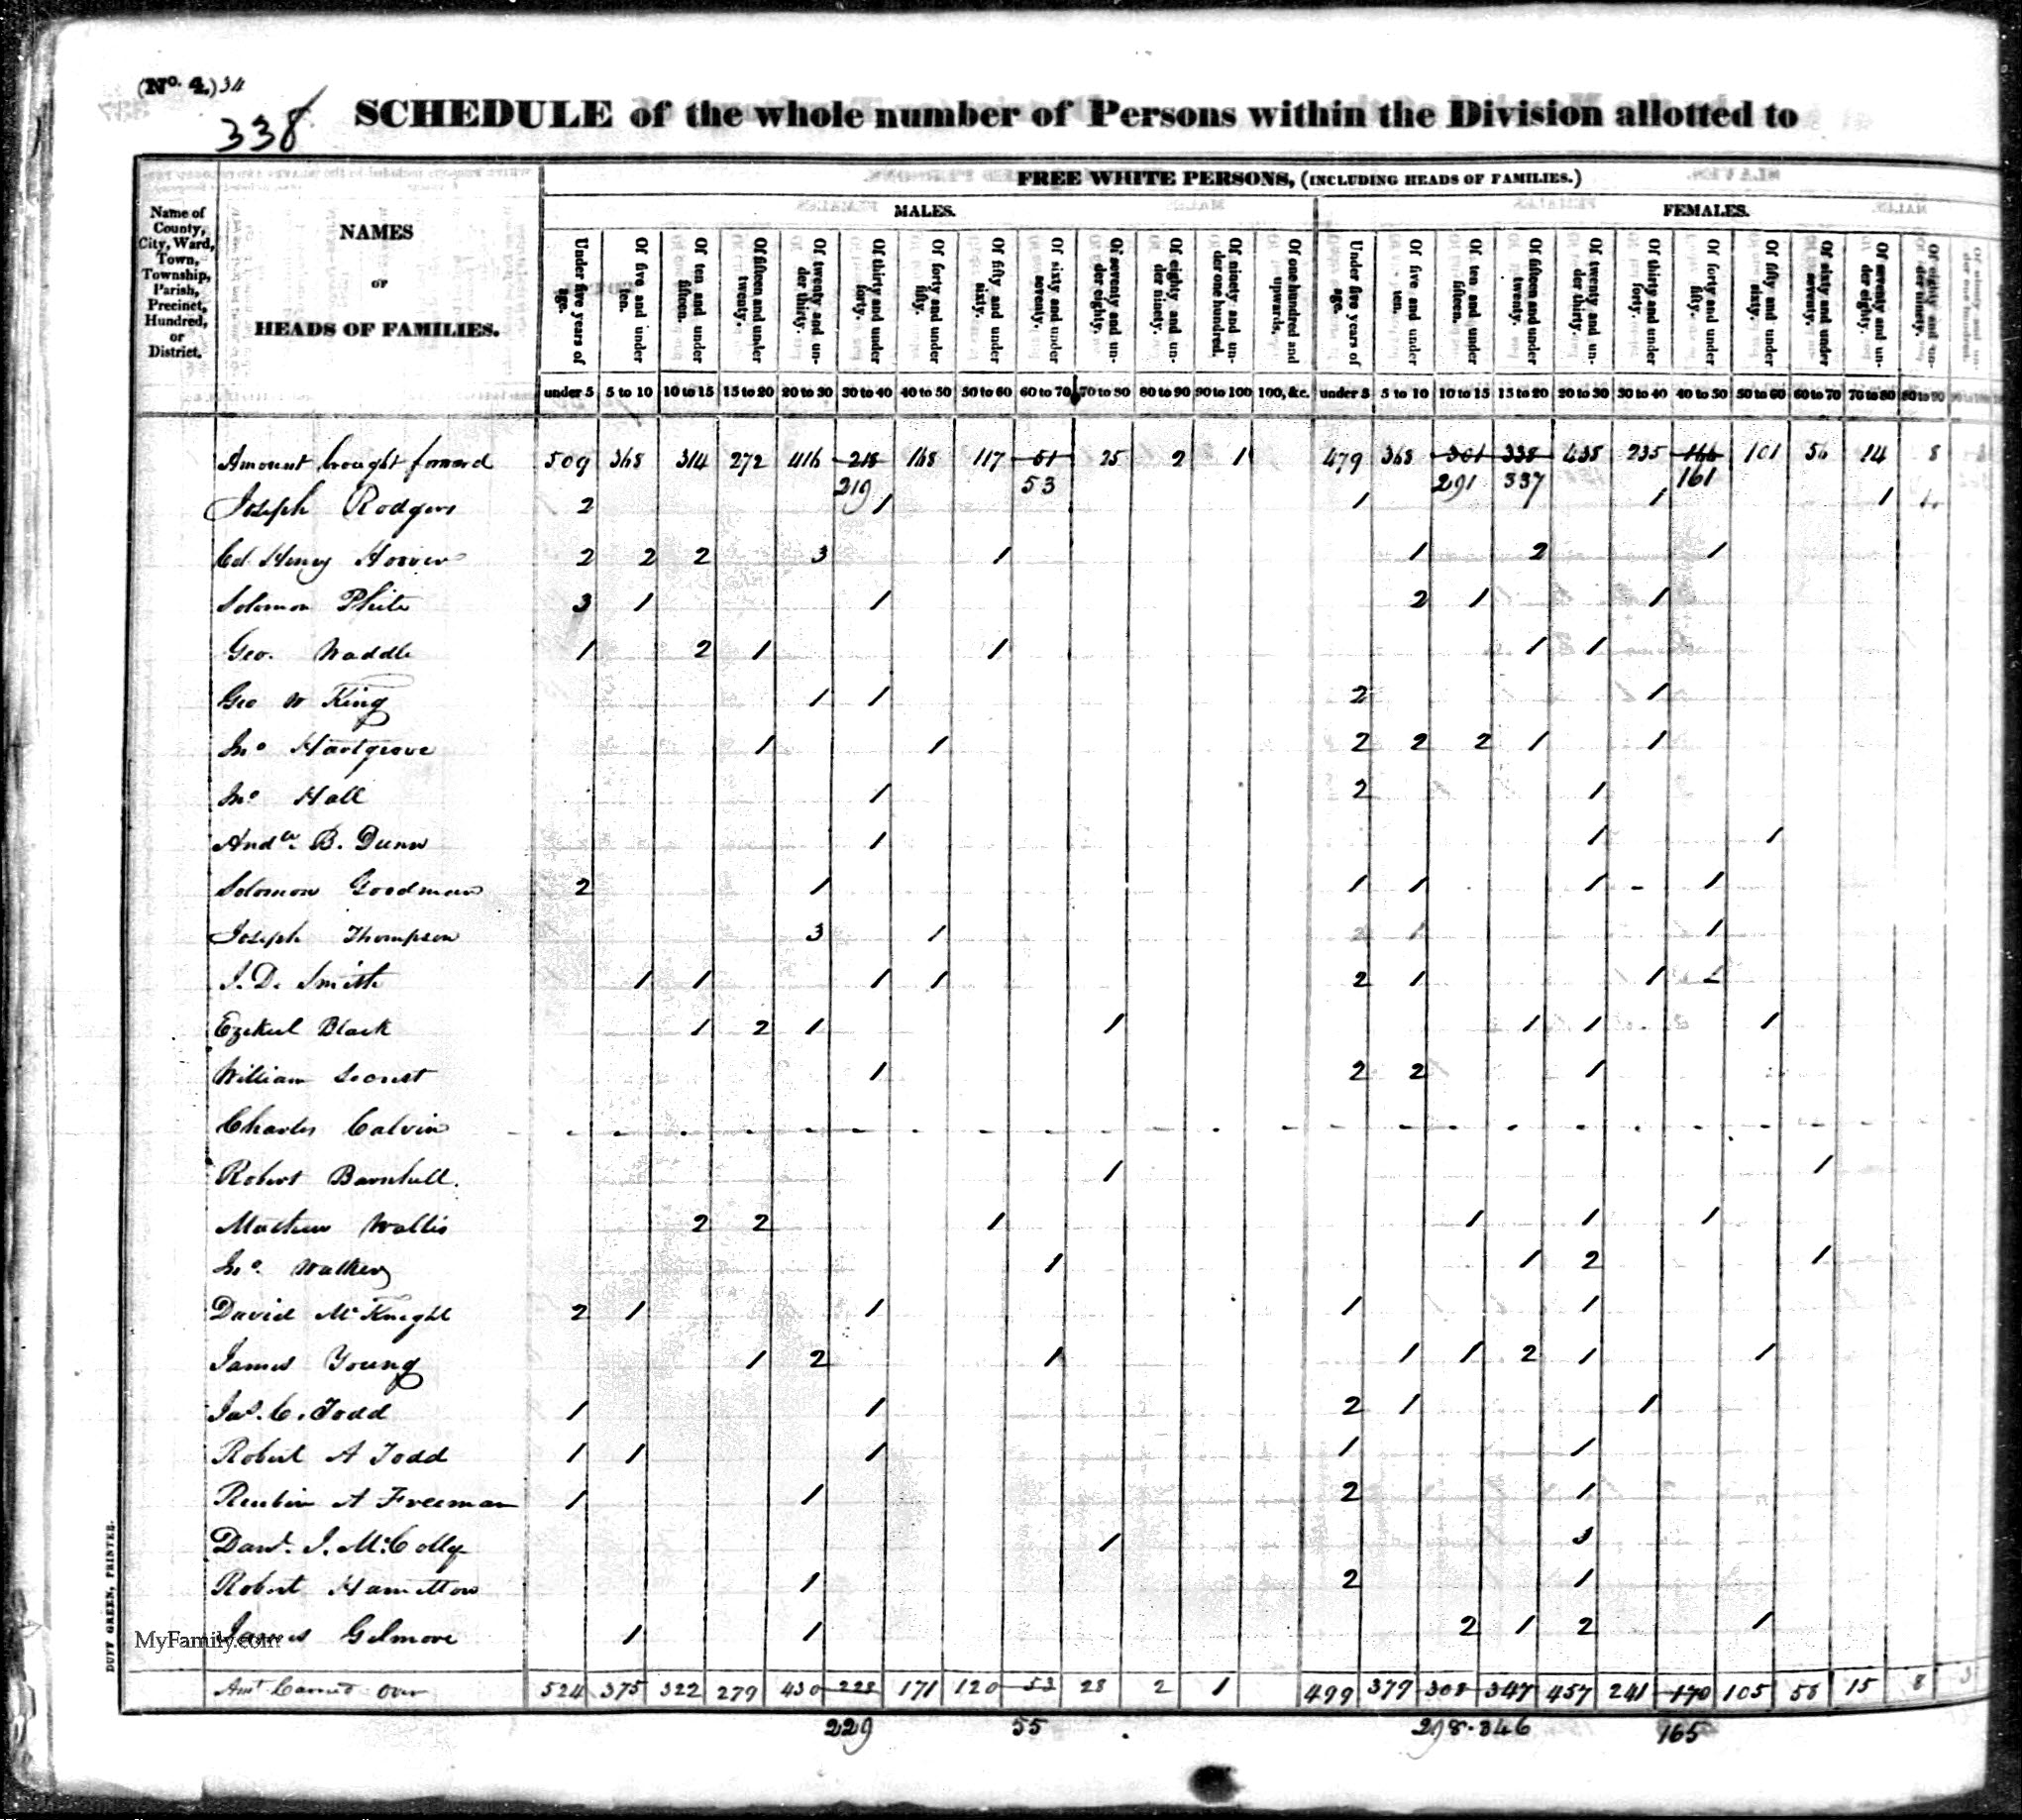 (No. 4.) 34
338
SCHEDULE of the whole number of Persons within the Division allotted to
Name of County, City, Ward, Town, Township, Parish, Precinct, Hundred, or District.
NAMES OF HEADS OF FAMILIES.
FREE WHITE PERSONS, (INCLUDING HEADS OF FAMILIES.)
MALES. FEMALES.
Under five years of age. Of five and under ten. Of ten and under fifteen. Of fifteen and under twenty. Of twenty and under thirty. Of thirty and under forty. Of forty and under fifty. Of fifty and under sixty. Of sixty and under seventy. Of seventy and under eighty. Of eighty and under ninety. Of ninety and under one hundred. Of one hundred and upwards. Under five years of age. Of five and under ten. Of ten and under fifteen. Of fifteen and under twenty. Of twenty and under thirty. Of thirty and under forty. Of forty and under fifty. Of fifty and under sixty. Of sixty and under seventy. Of seventy and under eighty. Of eighty and under ninety.
under 5 5 to 10 10 to 15 15 to 20 20 to 30 30 to 40 40 to 50 50 to 60 60 to 70 70 to 80 80 to 90 90 to 100 100, &c. under 5 5 to 10 10 to 15 15 to 20 20 to 30 30 to 40 40 to 50 50 to 60 60 to 70 70 to 80 80 to 90
Amount brought forward 509 368 314 272 416 218 168 117 51 25 2 1 479 368 301 338 438 235 166 101 56 14 8
219 53 291 337 161
Joseph Rodgers 2 1 1 1 1
Col. Henry Hoover 2 2 2 3 1 1 2 1
Solomon Phite 3 1 1 2 1 1
Geo. Waddle 1 2 1 1 1 1
Geo W King 1 1 2 1
Jno Hartgrove 1 1 2 2 2 1 1
Jno Hall 1 2 1
Andw. B. Dunn 1 1 1
Solomon Goodman 2 1 1 1 1 - 1
Joseph Thompson 3 1 1
J. D. Smith 1 1 1 1 2 1 1
Ezekiel Black 1 2 1 1 1 1 1
William 1 2 2 1
Charles Calvin - - - - - - - - - - - - - - - - - - - - - -
Robert Barnhill. 1 1
Mathew Wallis 2 2 1 1 1 1
Jno. Walker 1 1 2 1
David McKnight 2 1 1 1 1
James Young 1 2 1 1 1 2 1 1
Jas. C. Todd 1 1 2 1 1
Robert A Todd 1 1 1 1 1
Reubin A Freeman 1 1 2 1
J. McColly 1 3
Robert Hamilton 1 2 1
James Gilmore 1 1 2 1 2 1
Amt Carried over 524 375 322 279 430 228 171 120 53 28 2 1 499 379 308 347 457 241 170 105 58 15 8
229 55 298 346 165
DUFF GREEN, PRINTER.
MyFamily.com